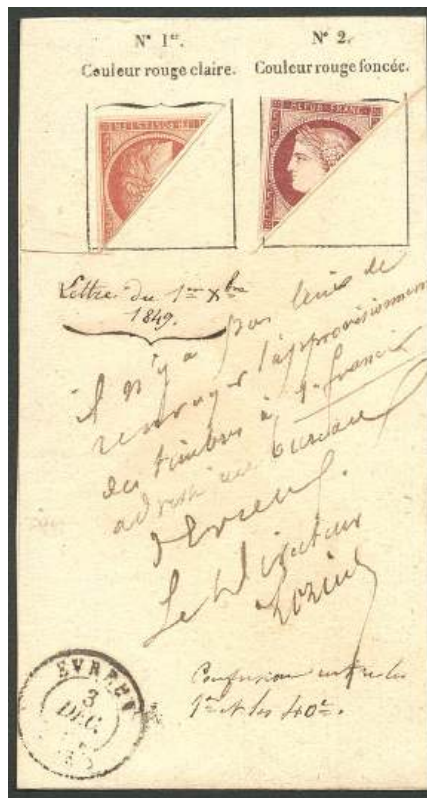 N° 1er.
Couleur rouge claire.
N° 2.
Couleur rouge foncée.
REPUB. FRANC.
Lettre du 1er Xbre
1849.
il n'y a pas lieu de
renvoyer l'approvisionnement
des timbres à 1. franc
adressé au bureau
d'
Le Directeur
Confusion entre les
1er et les 40c.
EVREUX
3
DEC.